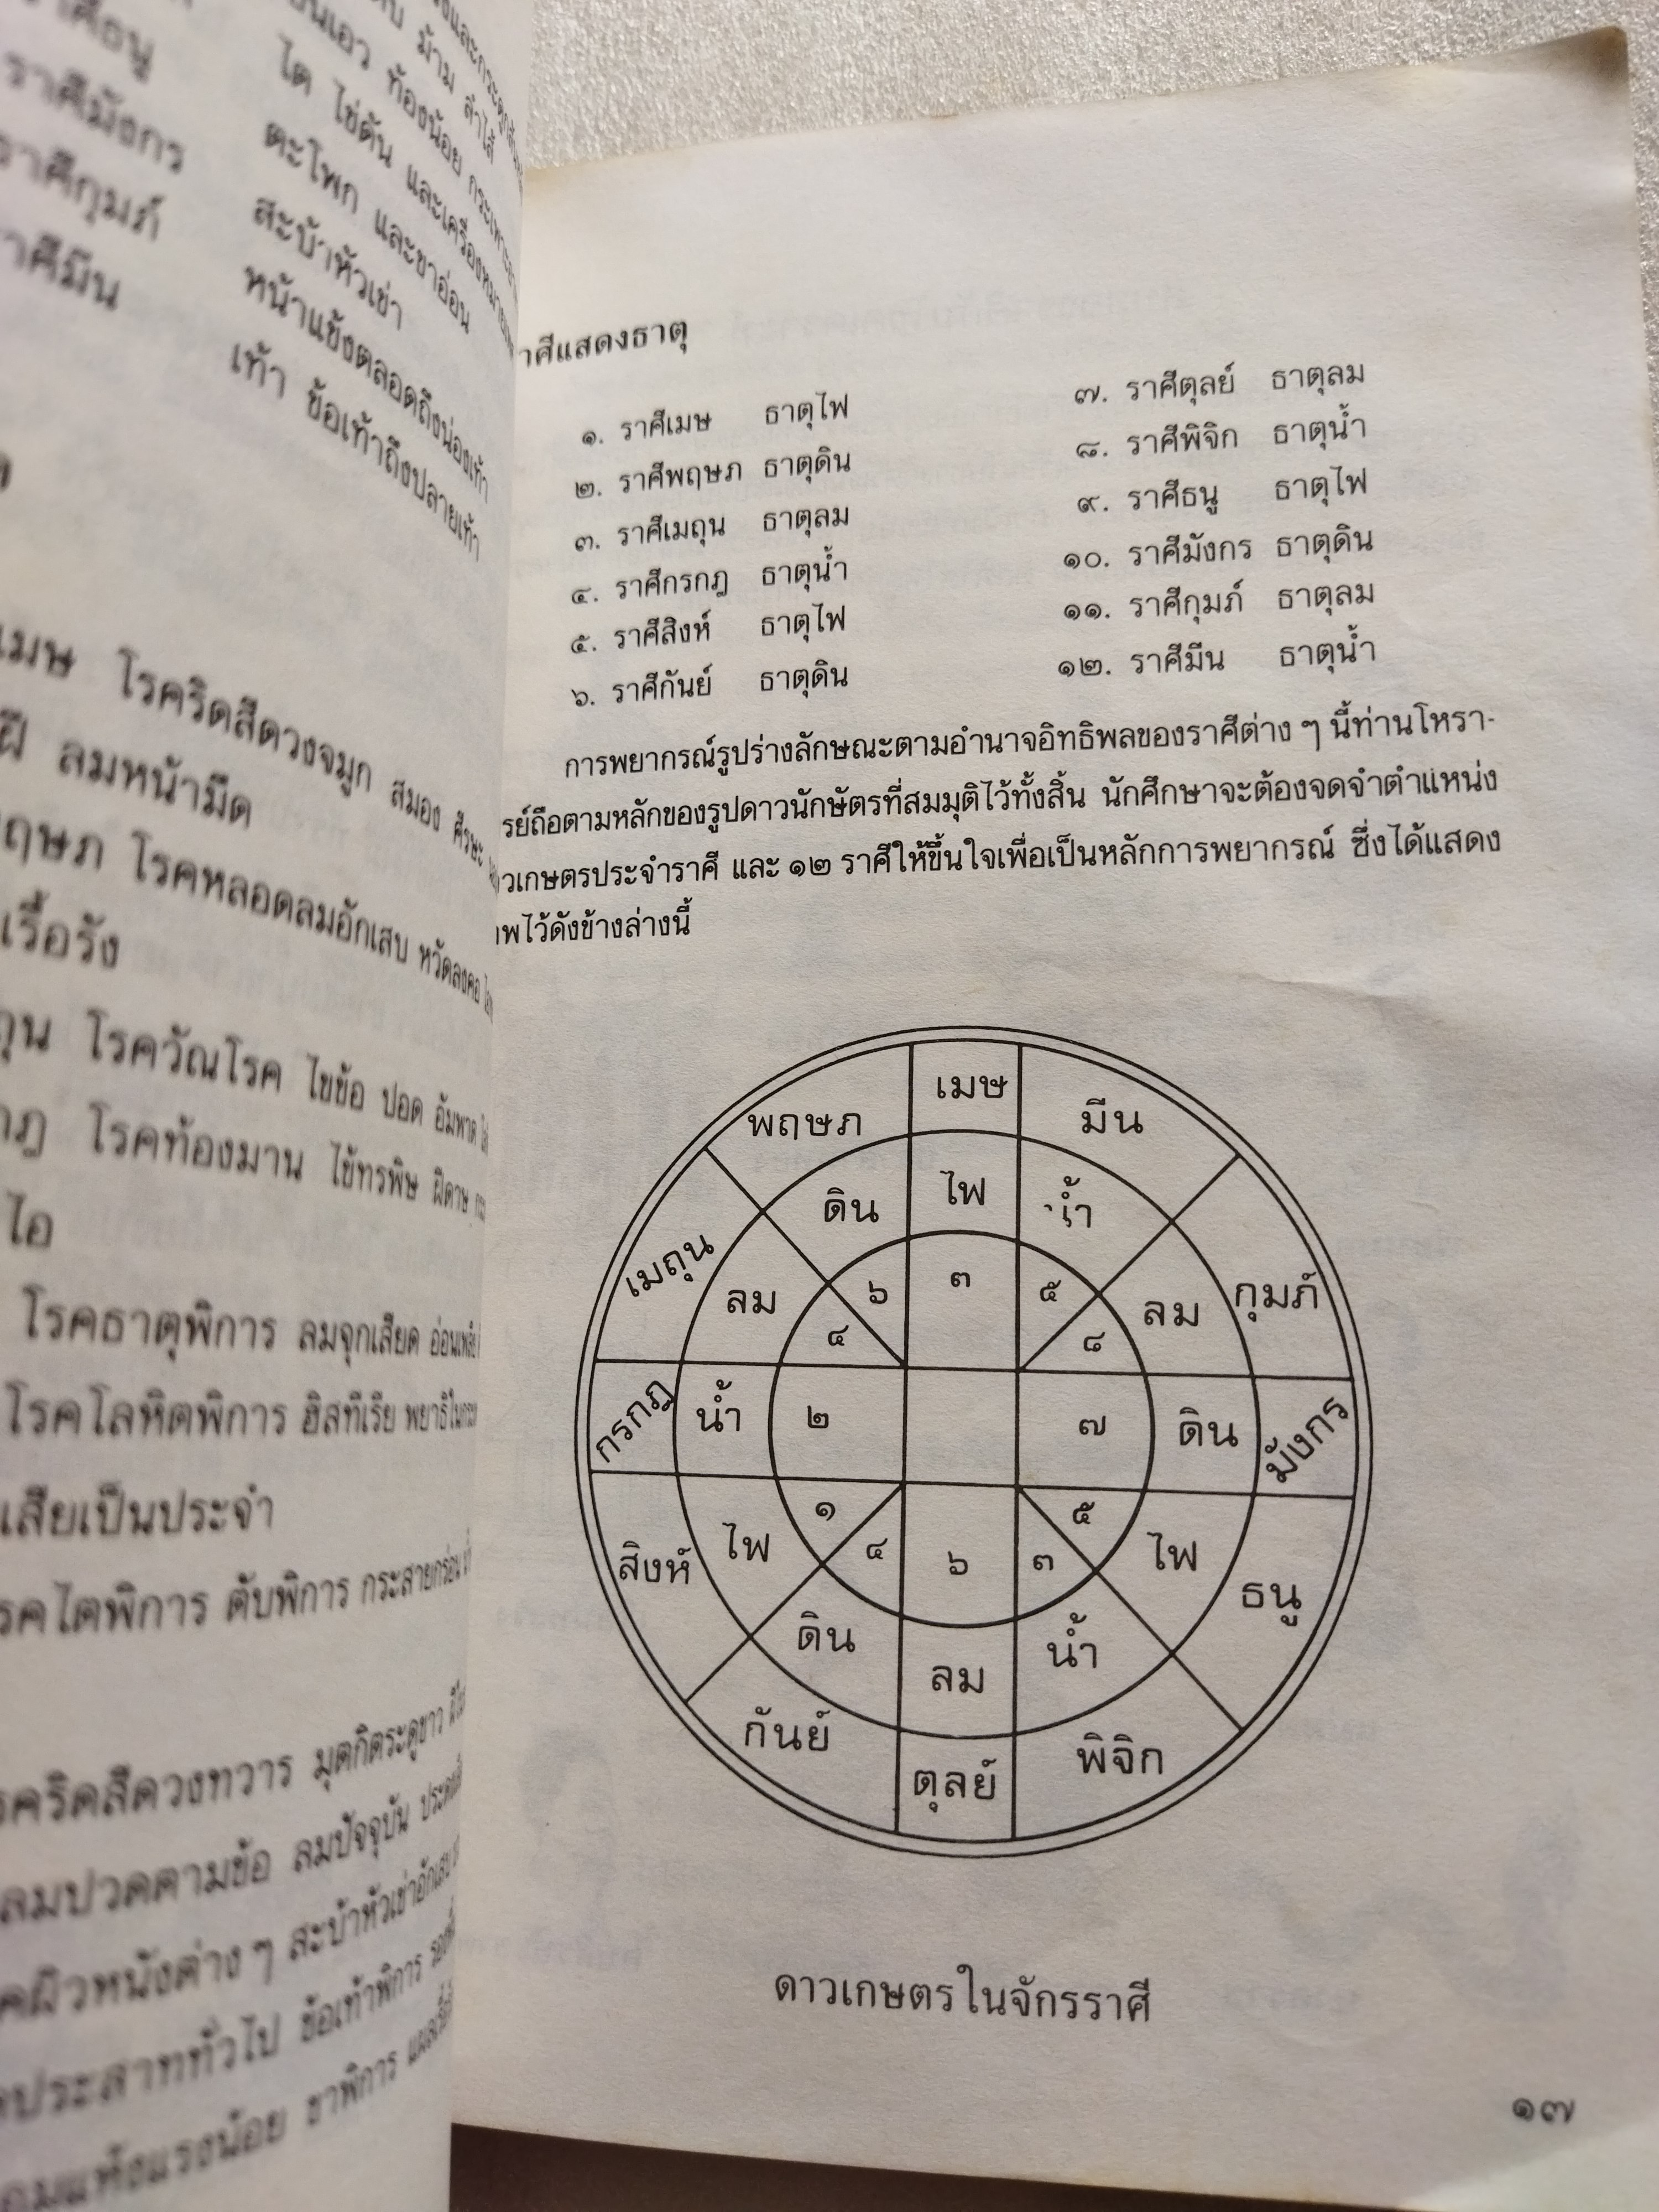 ราศีมังกร
เท้า ข้อเท้าถึงปลายเท้า
สะบ้าหัวเข่า
หน้าแข้งตลอดถึงน่องเท้า
ตะโพก และขาอ่อน
โรคริดสีดวงจมูก สมอง ศีรษะ
ลมหน้ามืด
โรคหลอดลมอักเสบ หวัดลงคอ
เรื้อรัง
โรควัณโรค ไขข้อ ปอด อัมพาต
โรคท้องมาน ไข้ทรพิษ ฝีดาษ
โรคธาตุพิการ ลมจุกเสียด
โรคโลหิตพิการ ฮิสทีเรีย
เสียเป็นประจำ
ไตพิการ ตับพิการ กระสายกร่อน
ริดสีดวงทวาร มุตกิดระดูขาว
ลมปวดตามข้อ ลมปัจจุบัน
ผิวหนังต่าง ๆ สะบ้าหัวเข่าอักเสบ
ประสาททั่วไป ข้อเท้าพิการ
าศีแสดงธาตุ
๑. ราศีเมษ ธาตุไฟ
๒. ราศีพฤษภ ธาตุดิน
๓. ราศีเมถุน ธาตุลม
๔. ราศีกรกฎ ธาตุน้ำ
๕. ราศีสิงห์ ธาตุไฟ
๖. ราศีกันย์ ธาตุดิน
๗. ราศีตุลย์ ธาตุลม
๘. ราศีพิจิก ธาตุน้ำ
๙. ราศีธนู ธาตุไฟ
๑๐. ราศีมังกร ธาตุดิน
๑๑. ราศีกุมภ์ ธาตุลม
๑๒. ราศีมีน ธาตุน้ำ
การพยากรณ์รูปร่างลักษณะตามอำนาจอิทธิพลของราศีต่าง ๆ นี้ท่านโหรา-
รย์ถือตามหลักของรูปดาวนักษัตรที่สมมุติไว้ทั้งสิ้น นักศึกษาจะต้องจดจำตำแหน่ง
วเกษตรประจำราศี และ ๑๒ ราศีให้ขึ้นใจเพื่อเป็นหลักการพยากรณ์ ซึ่งได้แสดง
าพไว้ดังข้างล่างนี้
พฤษภ เมษ มีน
ดิน ไฟ น้ำ
เมถุน ลม ๖ ๓ ๕ ลม กุมภ์
๔ ๘
กรกฎ น้ำ ๒ ๗ ดิน มังกร
๑ ๕
สิงห์ ไฟ ๔ ๖ ๓ ไฟ ธนู
ดิน ลม น้ำ
กันย์ ตุลย์ พิจิก
ดาวเกษตรในจักรราศี
๑๗